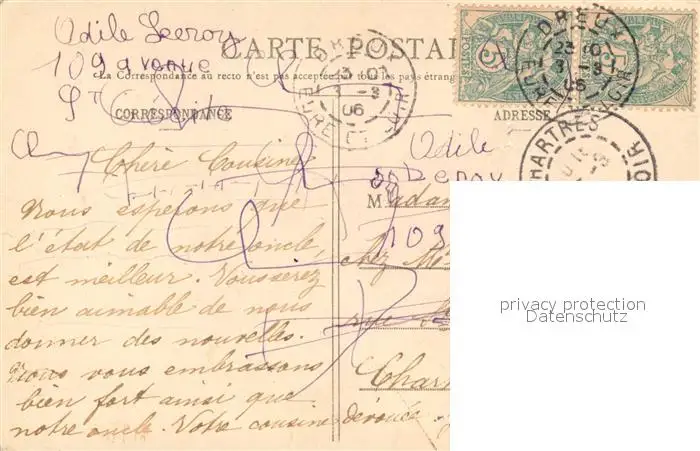 Odile Leroy
109 avenue
St
CARTE POSTALE
La Correspondance au recto n'est pas acceptée par tous les pays étrang
CORRESPONDANCE
ADRESSE
DREUX
3-3
06
EURE ET LOIR
DREUX
3-3
06
EURE ET LOIR
5
POSTES
CHARTRES
LOIR
Odile
Leroy
109
Chère Cousine
Nous espérons que
l'état de notre oncle
est meilleur. Vous serez
bien aimable de nous
donner des nouvelles.
Nous vous embrassons
bien fort ainsi que
notre oncle. Votre cousine dévouée
Madam
chez M
rue
Char
privacy protection
Datenschutz